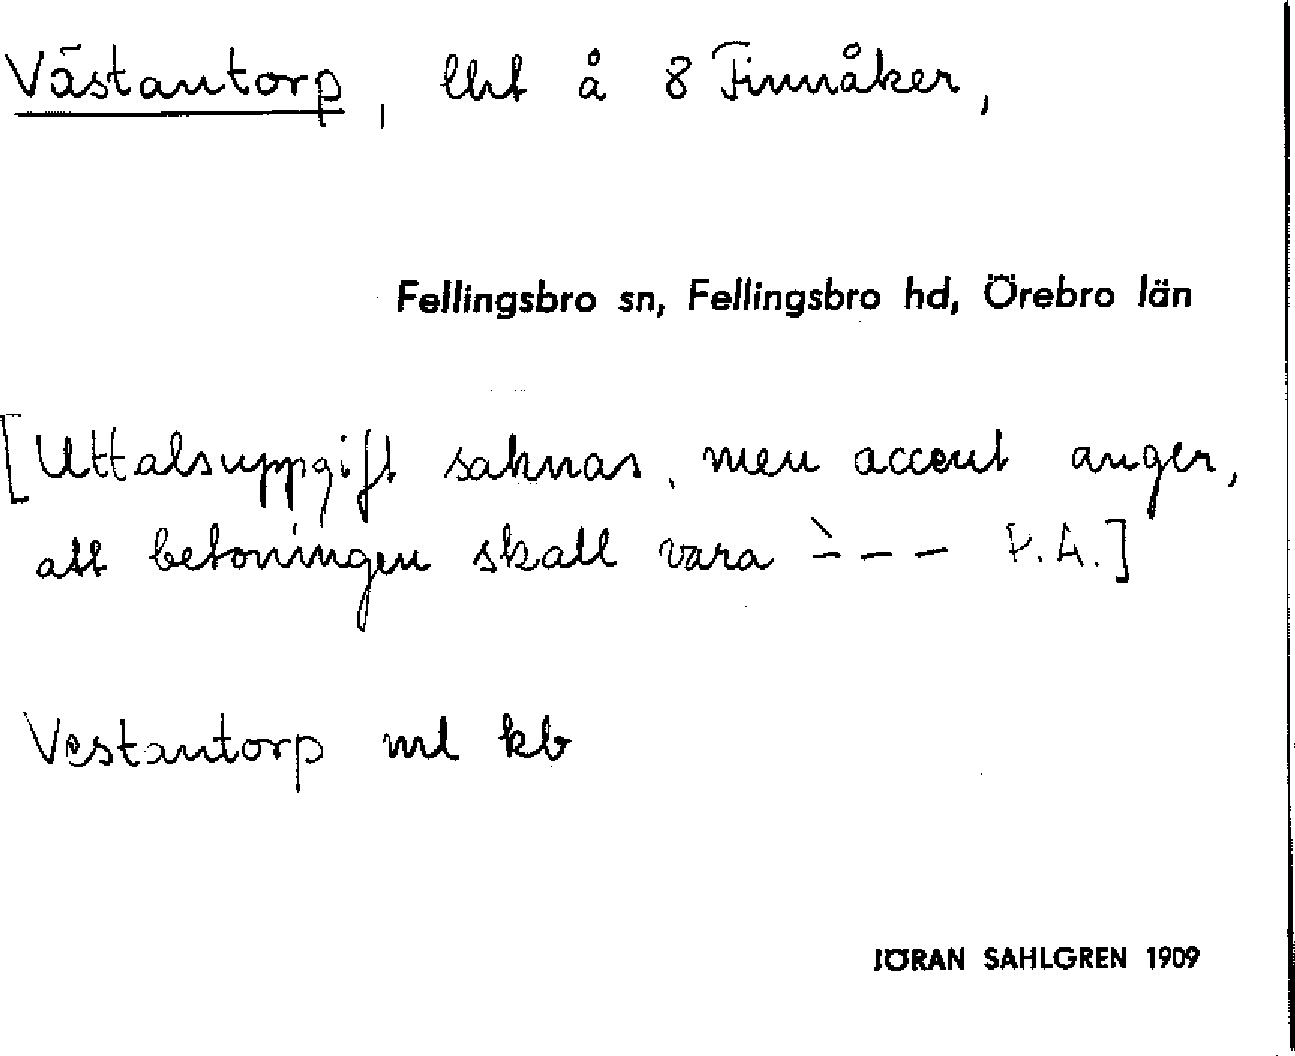 Västantorp, lht å 8 Finnåker,
Fellingsbro sn, Fellingsbro hd, Örebro län
[Uttalsuppgift saknas, men accent anger,
att betoningen skall vara ˋ– – – P.A.]
Vestantorp ml kb
JÖRAN SAHLGREN 1909